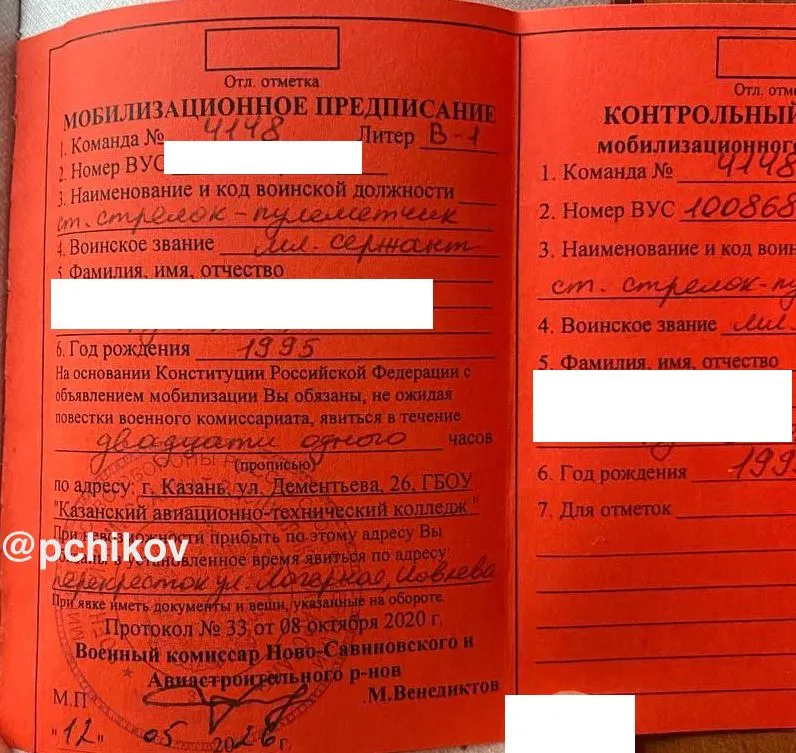 Отл. отметка
МОБИЛИЗАЦИОННОЕ ПРЕДПИСАНИЕ
1. Команда № 4148 Литер В-1
2. Номер ВУС
3. Наименование и код воинской должности
ст. стрелок-пулеметчик
4. Воинское звание мл. сержант
5 Фамилия, имя, отчество
6. Год рождения 1995
На основании Конституции Российской Федерации с
объявлением мобилизации Вы обязаны, не ожидая
повестки военного комиссариата, явиться в течение
двадцати одного часов
(прописью)
по адресу: г. Казань, ул. Дементьева, 26, ГБОУ
"Казанский авиационно-технический колледж"
При невозможности прибыть по этому адресу Вы
в установленное время явиться по адресу:
перекресток ул. Лагерная,
При явке иметь документы и вещи, указанные на обороте.
Протокол № 33 от 08 октября 2020 г.
Военный комиссар Ново-Савиновского и
Авиастроительного р-нов
М.П М.Венедиктов
"12" 05 2026 г.
@pchikov
Отл. отме
КОНТРОЛЬНЫЙ
мобилизационного
1. Команда № 4148
2. Номер ВУС 100868
3. Наименование и код воин
ст. стрелок-пу
4. Воинское звание мл.
5. Фамилия, имя, отчество
6. Год рождения 1995
7. Для отметок